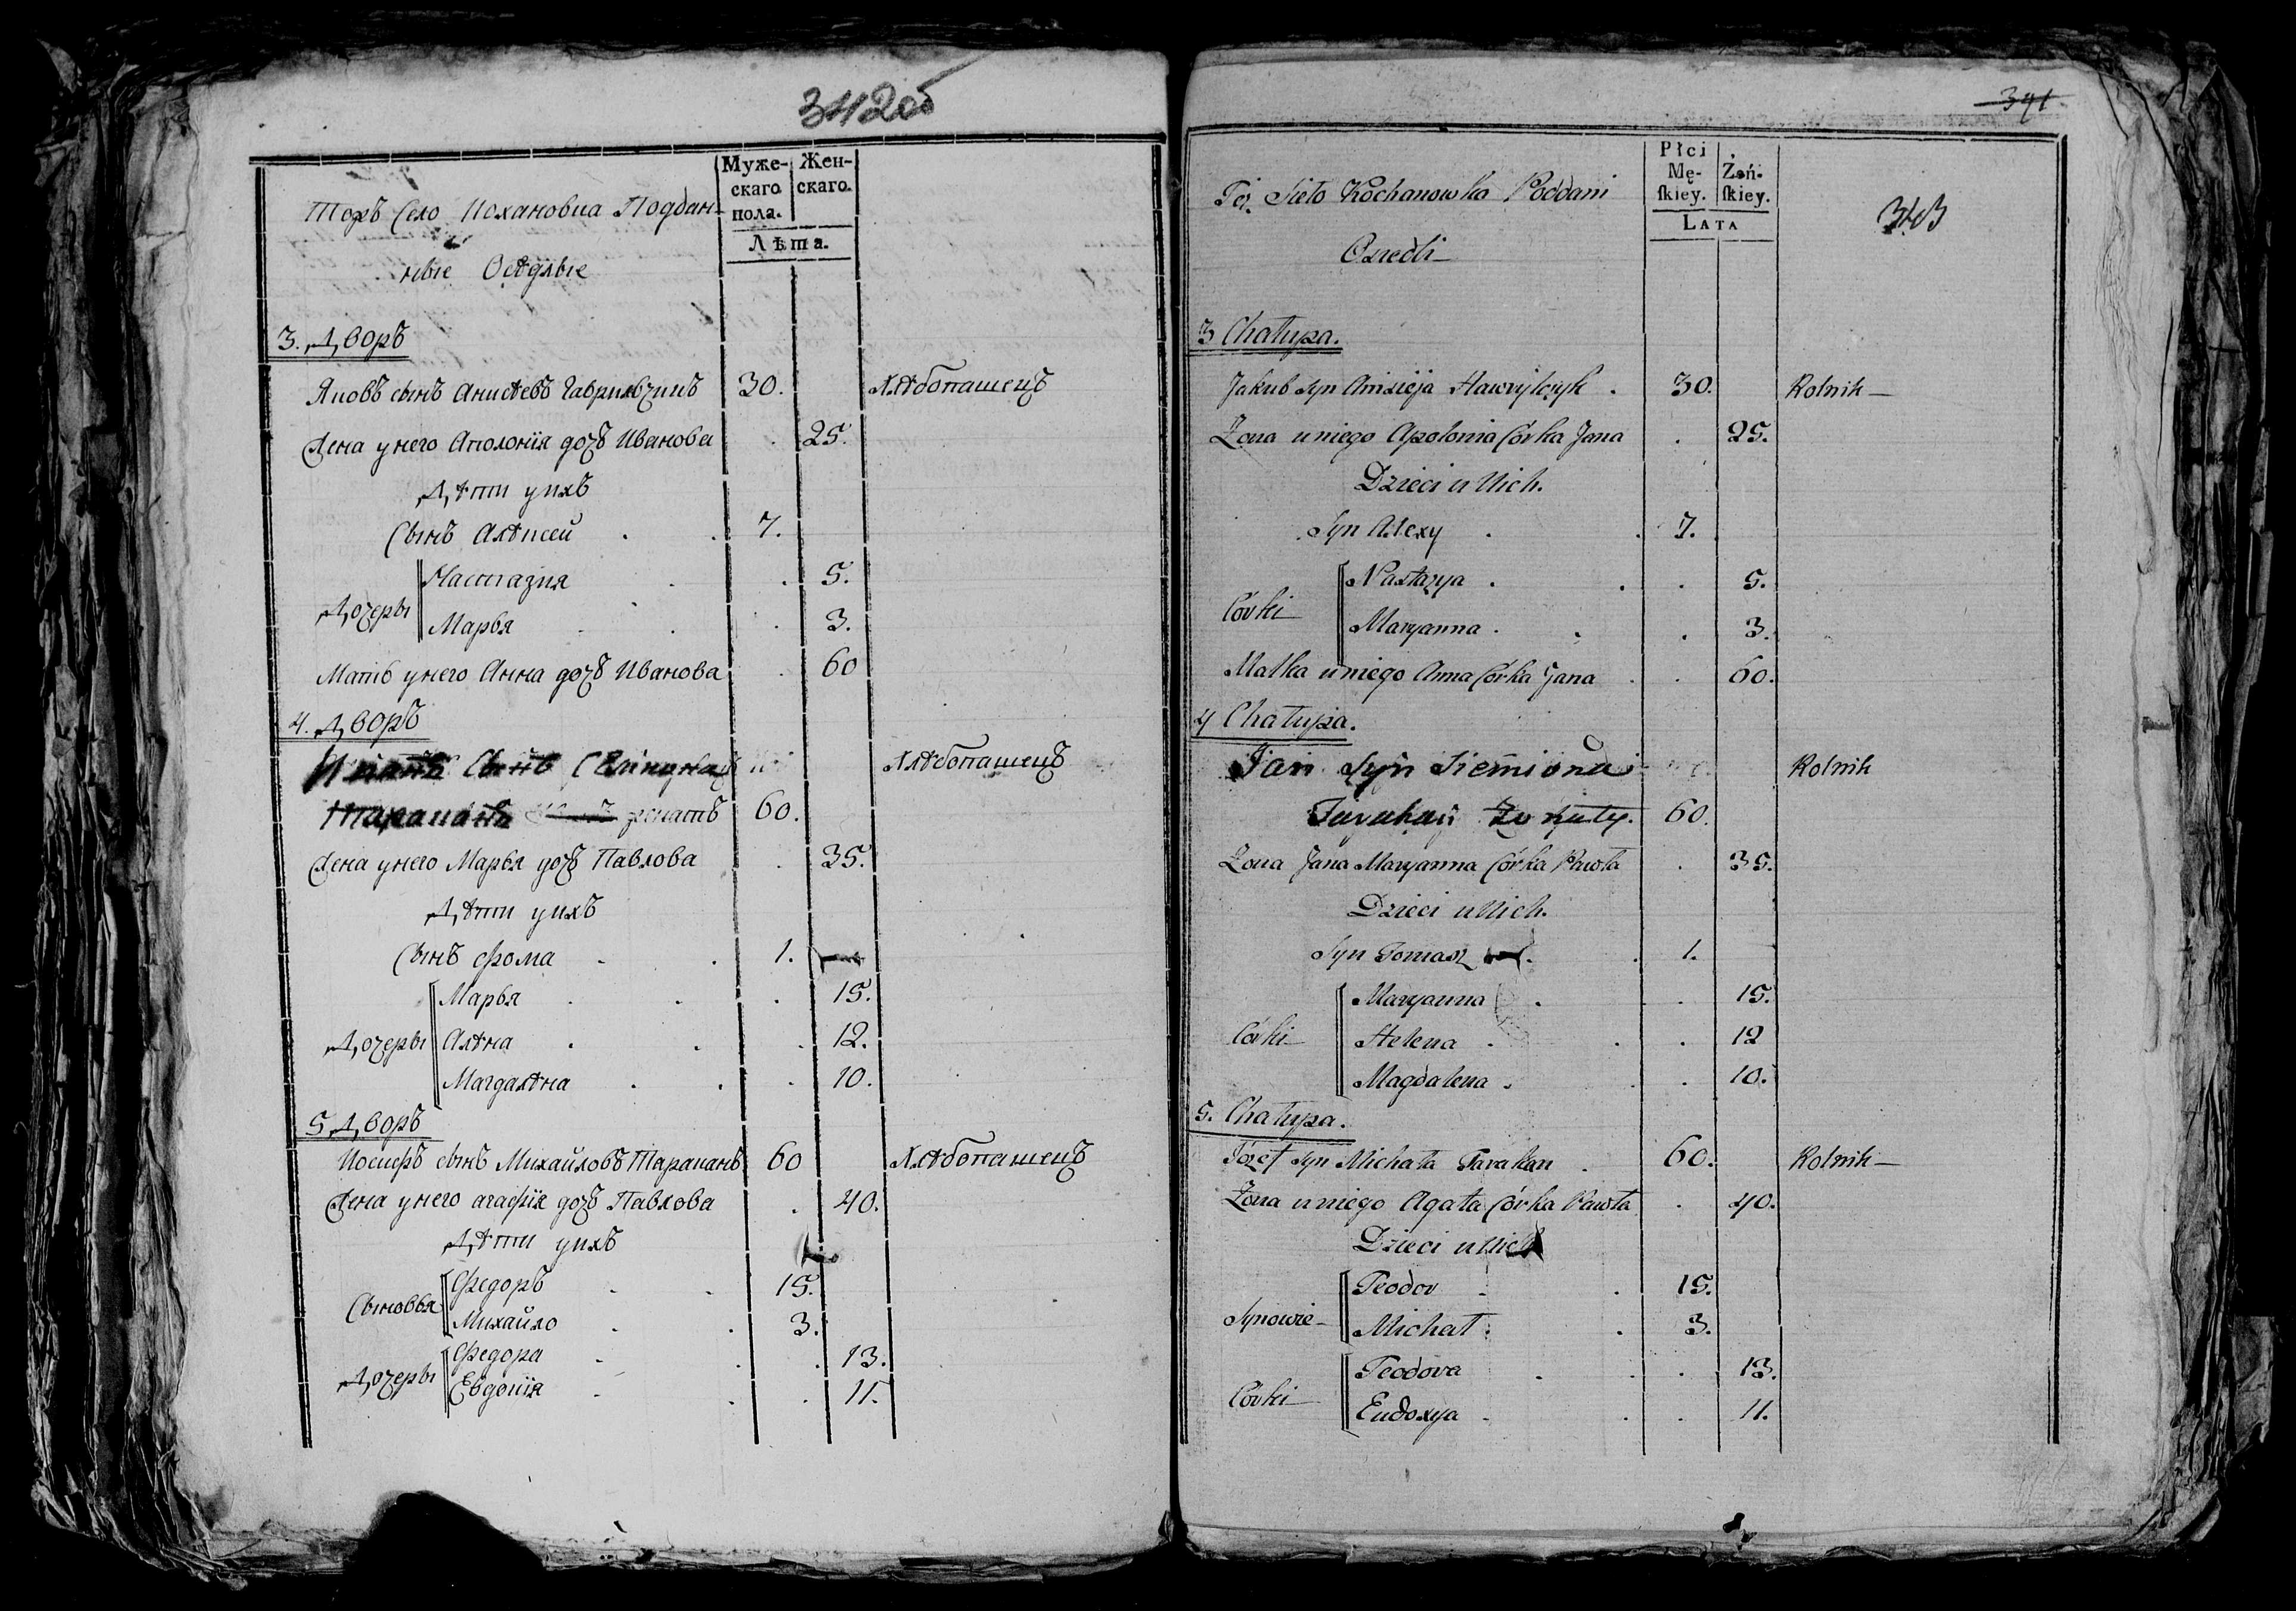 342об
Муже-
скаго
пола.
Жен-
скаго.
Лѣта.
Тожъ Село Кохановка Поддан-
ные Осѣдлые
3. Дворъ
Яковъ сынъ Анисѣевъ Гаврильчикъ 30. Хлѣбопашецъ
Жена у него Аполонія дочь Иванова 25.
Дѣти у ихъ
Сынъ Алѣксей 7.
Дочеры
Настазия 5.
Марья 3.
Мать у него Анна дочь Иванова 60
4. Дворъ
сынъ Хлѣбопашецъ
Тараканъ 60.
Жена у него Марья дочь Павлова 35.
Дѣти у ихъ
Сынъ Фома 1.
Дочеры
Марья 15.
Алѣна 12.
Магдалѣна 10.
5 Дворъ
Иосифъ сынъ Михайловъ Тараканъ 60 Хлѣбопашецъ
Жена у него Агафія дочь Павлова 40.
Дѣти у ихъ
Сыновья
Федоръ 15.
Михайло 3.
Дочеры
Федора 13.
Евдокія 11.
341
343
Płci
Mę-
ſkiey.
Żeń-
ſkiey.
LATA
Też Sioło Kochanowka Poddani
Osiedli
3 Chałupa.
Jakub Syn Anisieja Hawrylczyk 30. Rolnik
Żona u niego Apolonia Córka Jana 25.
Dzieci u Nich.
Syn Alexy 7.
Córki
Nastazya 5.
Maryanna 3.
Matka u niego Anna Córka Jana 60.
4 Chałupa.
Jan Syn Siemiona Rolnik
Tarakan 60.
Żona Jana Maryanna Córka Pawła 35.
Dzieci u Nich.
Syn Tomasz 1.
Córki
Maryanna 15.
Helena 12
Magdalena 10.
5. Chałupa.
Józef Syn Michała Tarakan 60. Rolnik
Żona u niego Agata Córka Pawła 40.
Dzieci u Nich
Synowie
Teodor 15.
Michał 3.
Córki
Teodora 13.
Eudoxya 11.